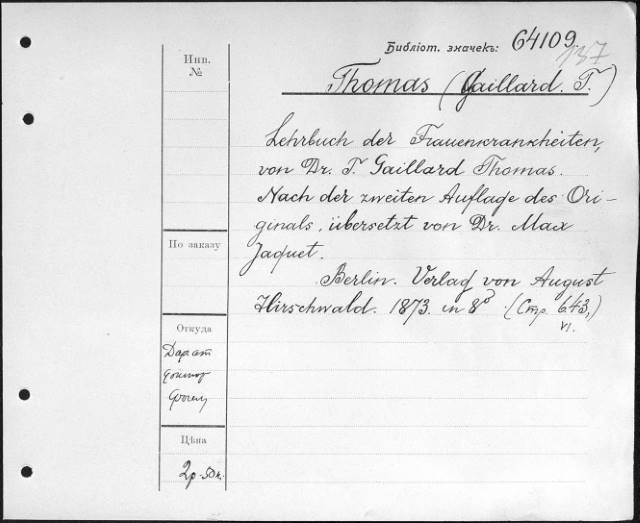 Библіот. значекъ: 64109.
137
Инв.
№
Thomas (Gaillard. T.)
Lehrbuch der Frauenkrankheiten,
von Dr. T. Gaillard Thomas.
Nach der zweiten Auflage des Ori-
ginals, übersetzt von Dr. Max
Jaquet.
Berlin. Verlag von August
Hirschwald. 1873. in 8° (Стр. 643,)
VI.
По заказу
Откуда
Дар от
доктор
Цѣна
2р. 50к.